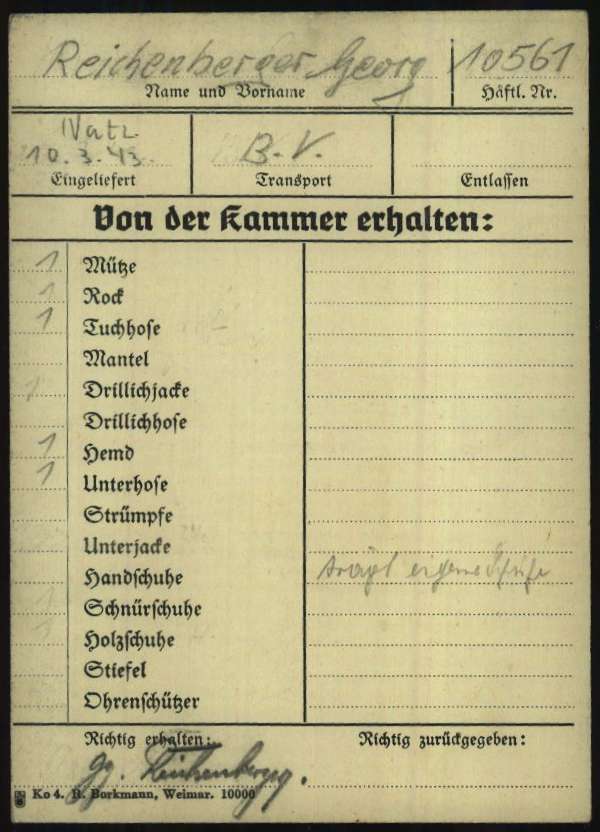 Reichenberger Georg 10561
Name und Vorname Häftl. Nr.
Natz.
10.3.43. B.-V.
Eingeliefert Transport Entlassen
Von der Kammer erhalten:
1 Mütze
1 Rock
1 Tuchhose
Mantel
1 Drillichjacke
Drillichhose
1 Hemd
1 Unterhose
Strümpfe
Unterjacke
Handschuhe trägt eigene Schuhe
1 Schnürschuhe
1 Holzschuhe
Stiefel
Ohrenschützer
Richtig erhalten: Richtig zurückgegeben:
Gg. Reichenberger.
Ko 4. R. Borkmann, Weimar. 10000